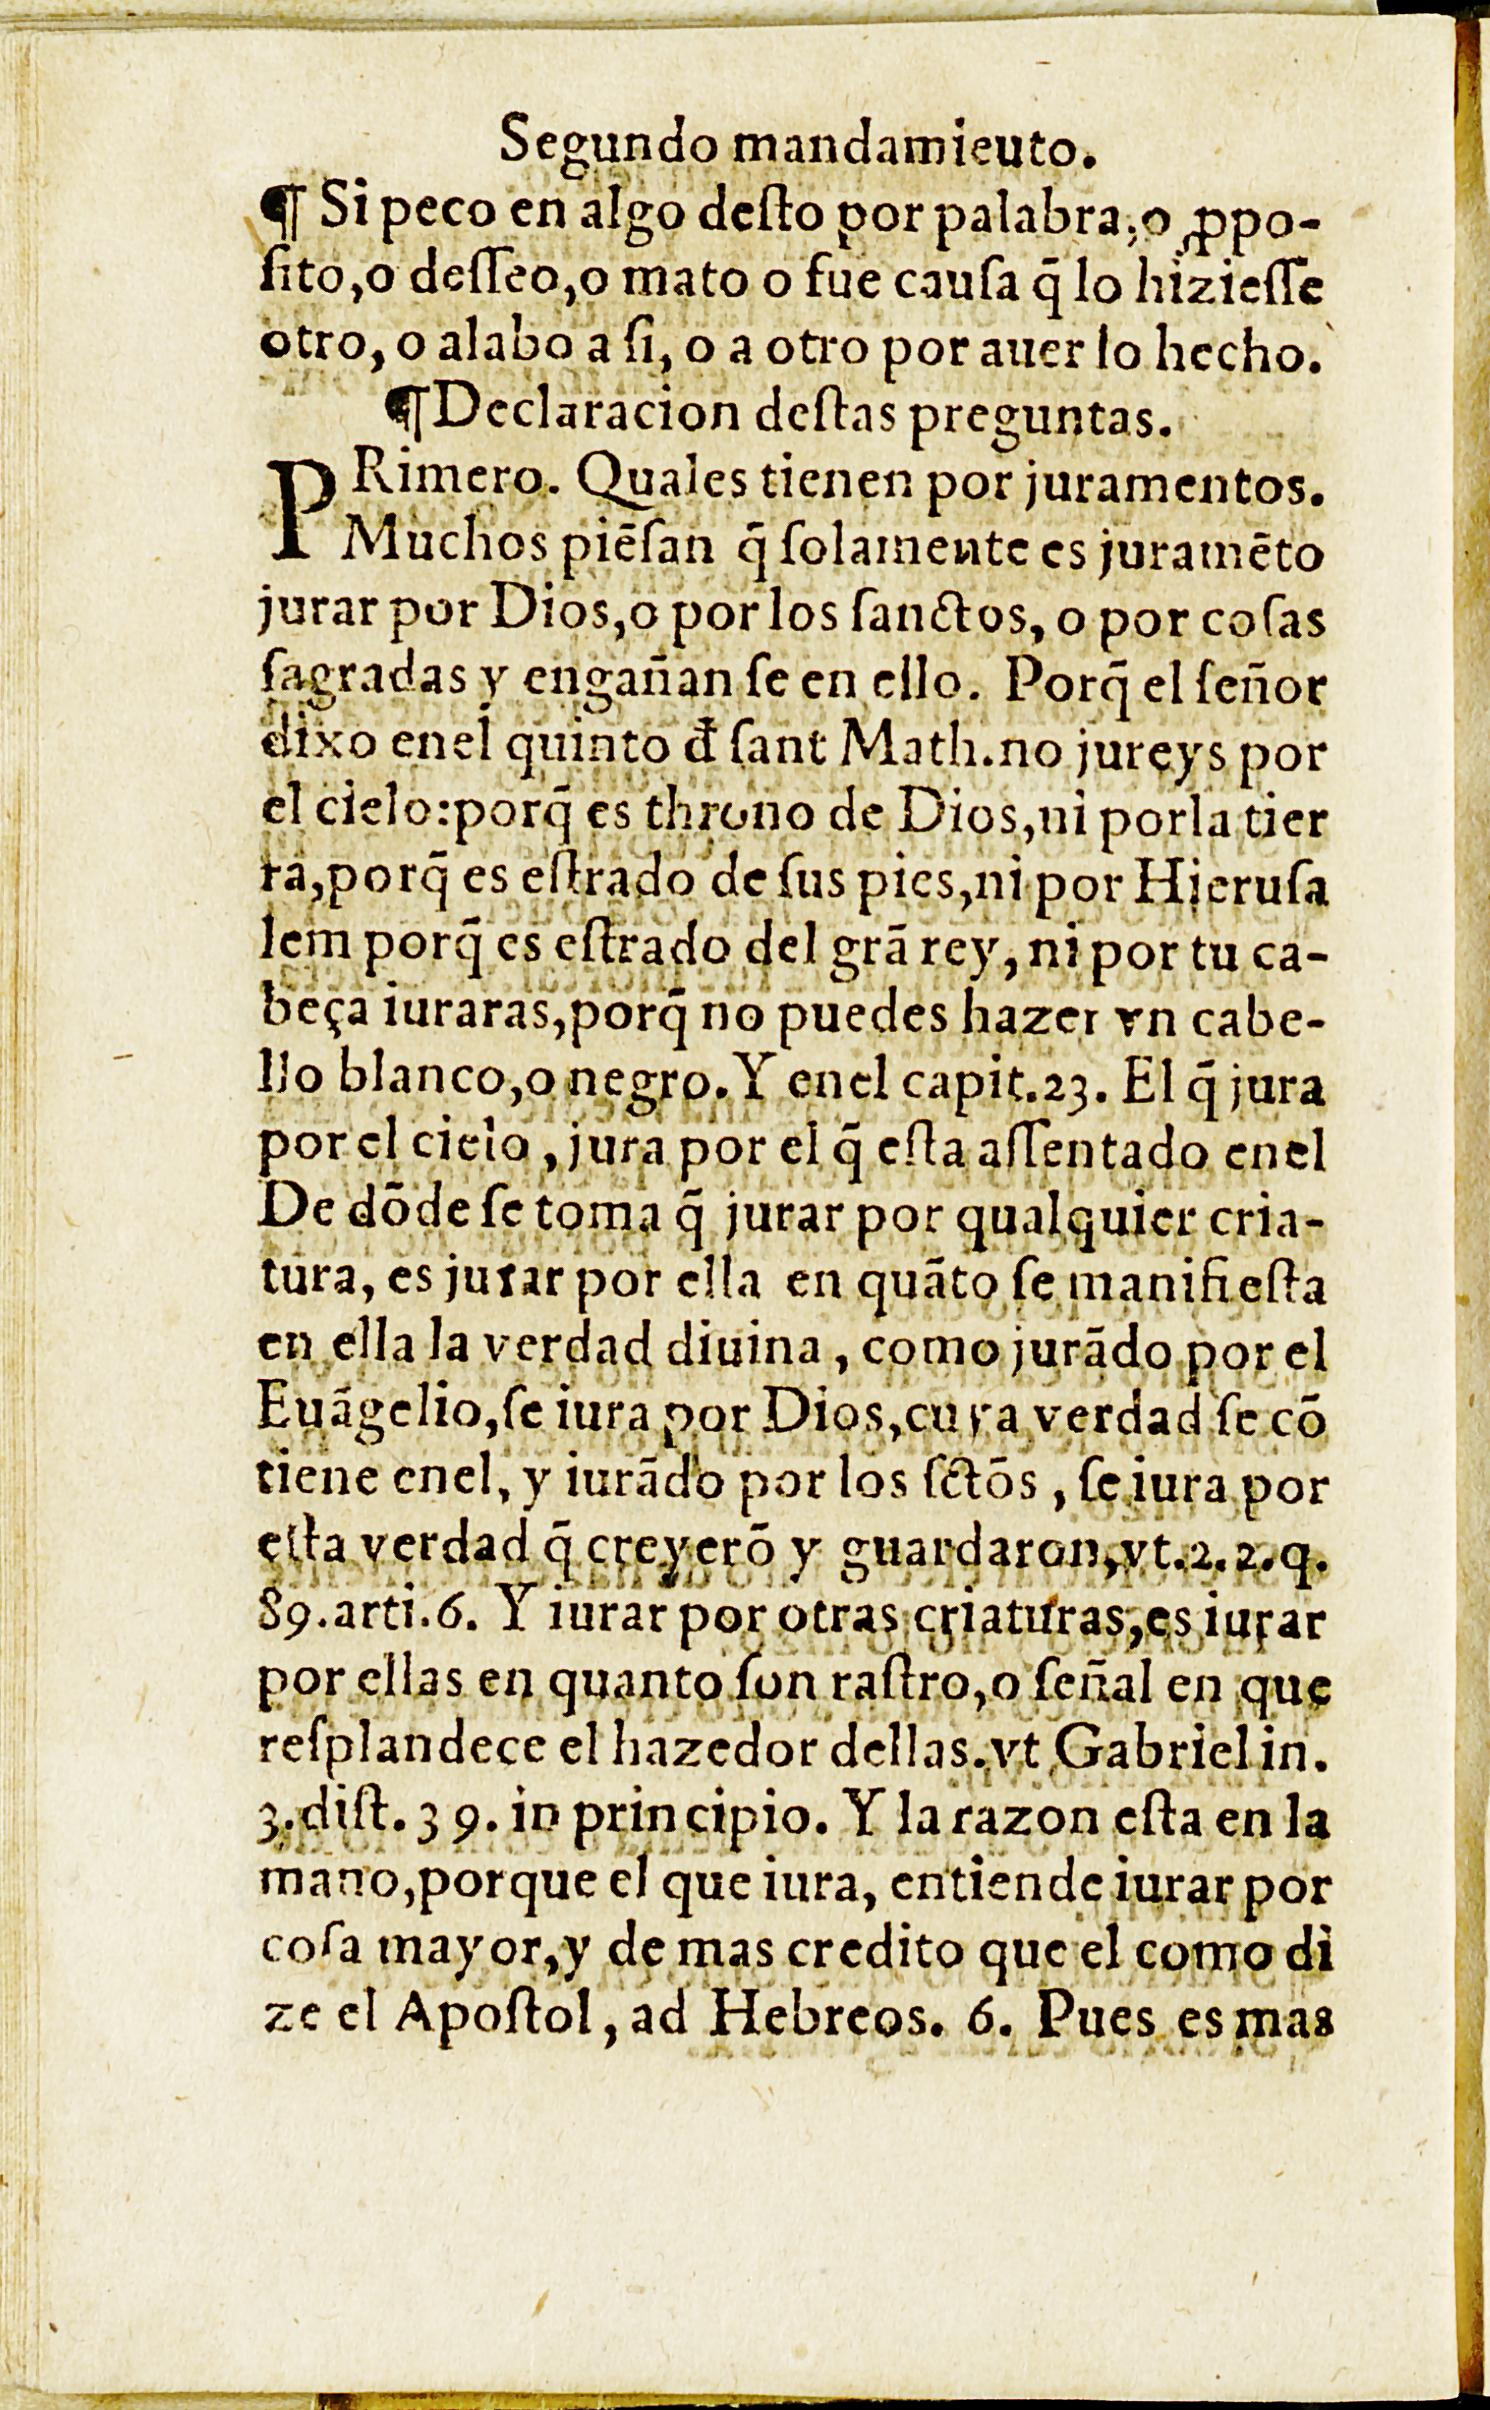 Segundo mandamieuto.
¶ Si peco en algo deſto por palabra, o ꝓpo-
ſito,o deſſeo,o mato o fue cauſa q̃ lo hizieſſe
otro, o alabo a ſi, o a otro por auer lo hecho.
¶Declaracion deſtas preguntas.
PRimero. Quales tienen por juramentos.
Muchos piẽſan q̃ ſolamente es juramẽto
jurar por Dios,o por los ſanctos, o por coſas
ſagradas y engañan ſe en ello. Porq̃ el ſeñor
dixo enel quinto đ ſant Math.no jureys por
el cielo:porq̃ es throno de Dios,ni porla tier
ra,porq̃ es eſtrado de ſus pies,ni por Hieruſa
lem porq̃ es eſtrado del grã rey, ni por tu ca-
beça iuraras,porq̃ no puedes hazer vn cabe-
llo blanco,o negro. Y enel capit.23. El q̃ jura
por el cielo , jura por el q̃ eſta aſſentado enel
De dõde ſe toma q̃ jurar por qualquier cria-
tura, es jurar por ella en quãto ſe manifieſta
en ella la verdad diuina , como jurãdo por el
Euãgelio,ſe iura por Dios,cuya verdad ſe cõ
tiene enel, y iurãdo por los ſctõs , ſe iura por
eſta verdad q̃ creyerõ y guardaron,vt.2.2.q.
89.arti.6. Y iurar por otras criaturas,es iurar
por ellas en quanto ſon raſtro,o ſeñal en que
reſplandece el hazedor dellas.vt Gabriel in.
3.diſt.39. in principio. Y la razon eſta en la
mano,porque el que iura, entiende iurar por
coſa mayor,y de mas credito que el como di
ze el Apoſtol, ad Hebreos. 6. Pues es mas